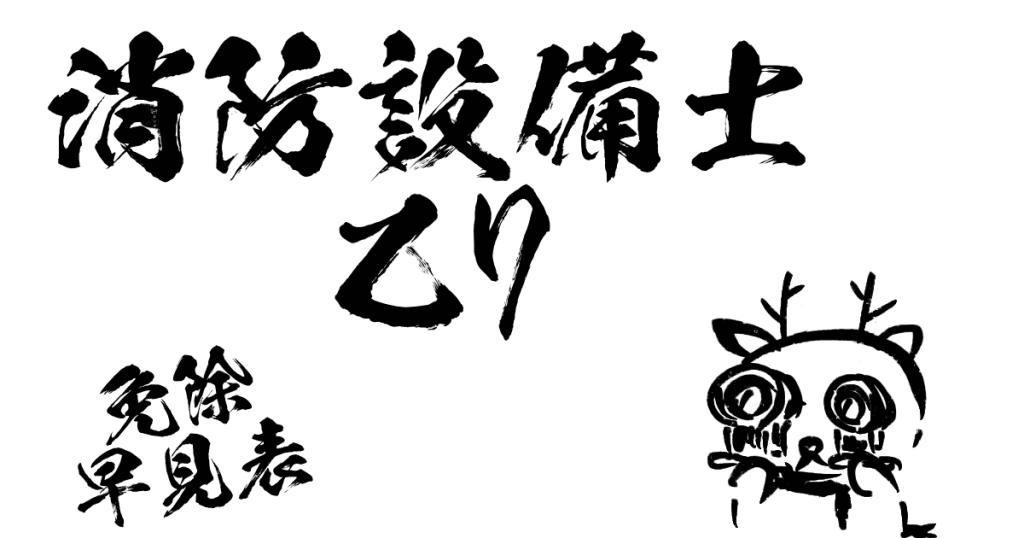 消防設備士
乙り
免除
早見表